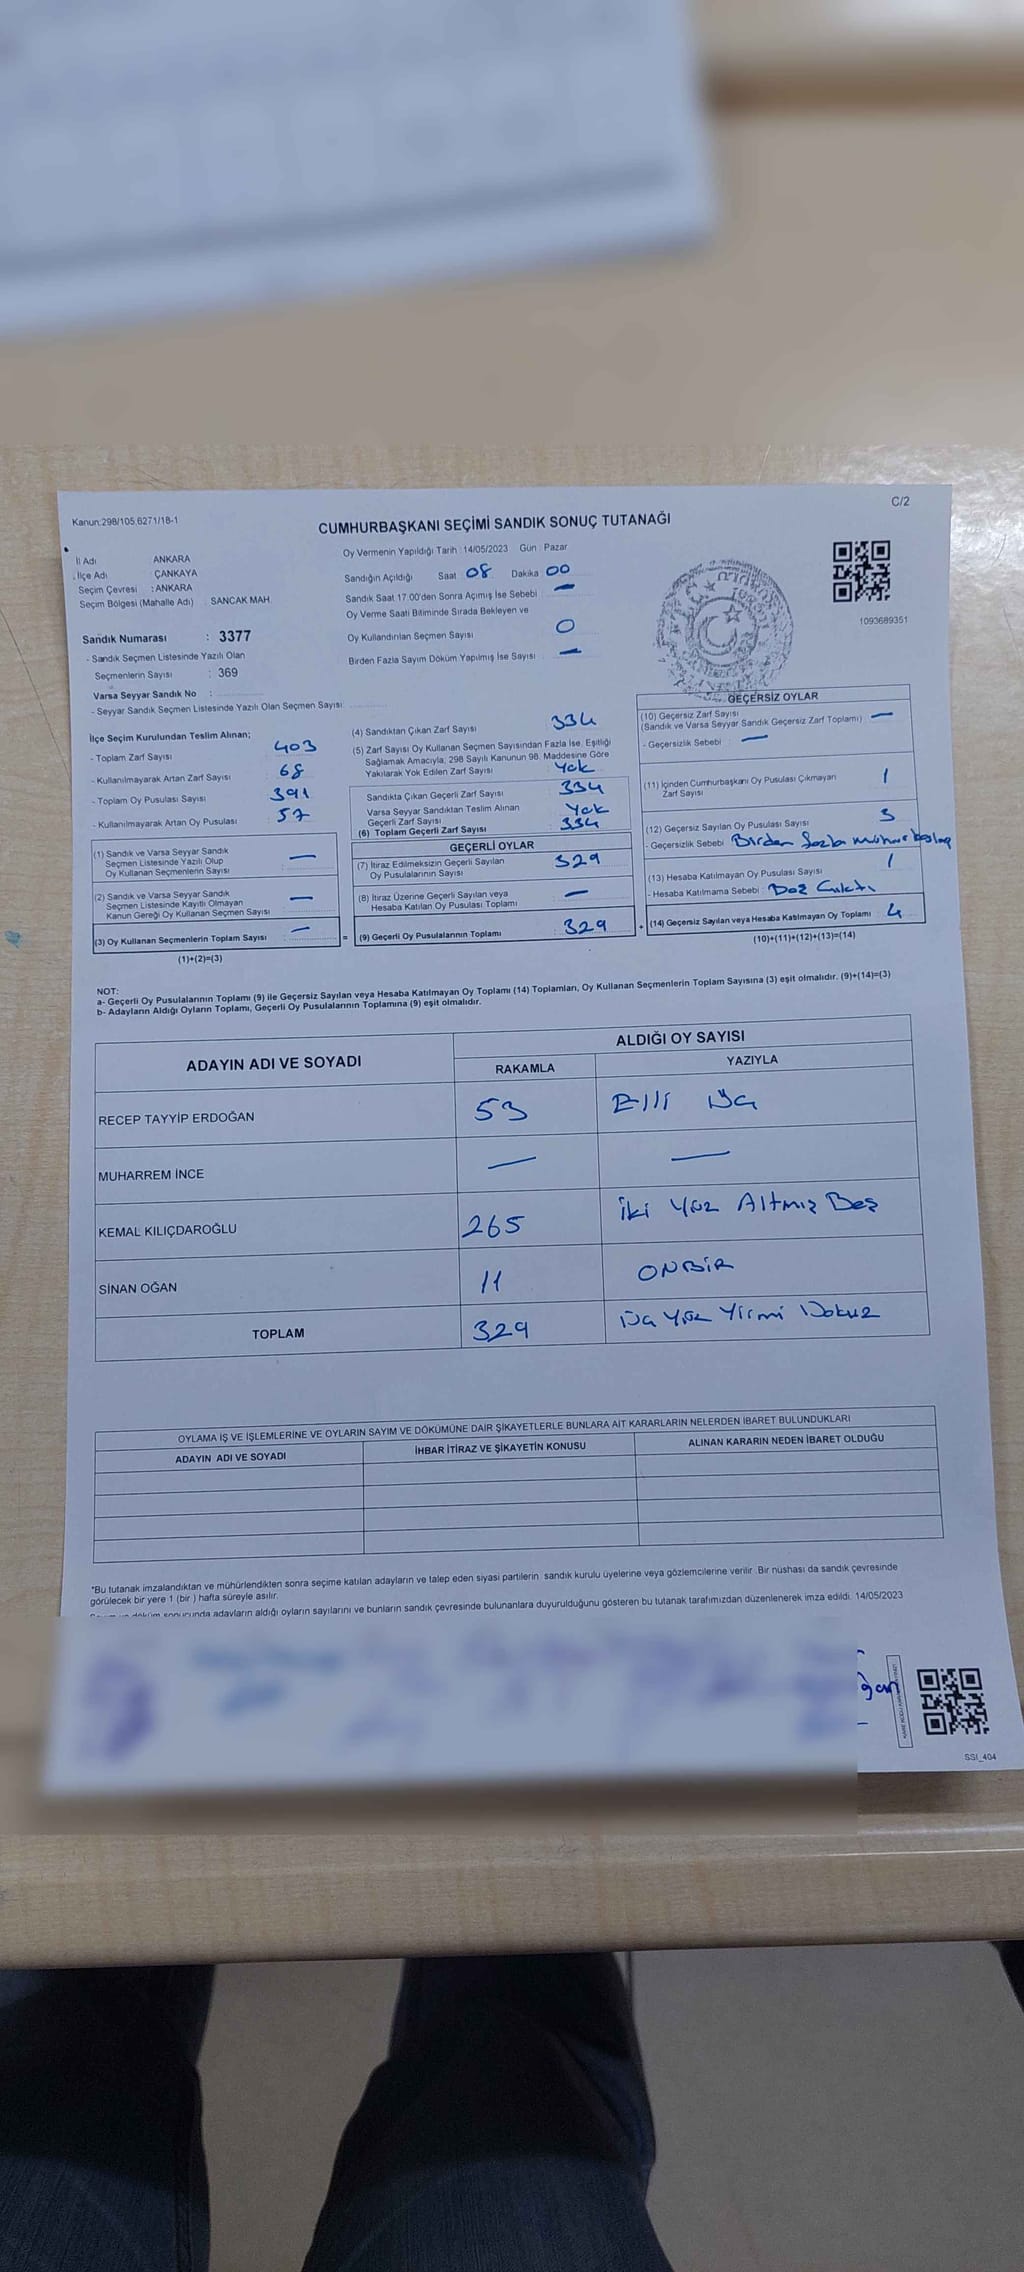 Kanun:298/105,6271/18-1
C/2
CUMHURBAŞKANI SEÇİMİ SANDIK SONUÇ TUTANAĞI
İl Adı ANKARA
İlçe Adı ÇANKAYA
Seçim Çevresi : ANKARA
Seçim Bölgesi (Mahalle Adı) SANCAK MAH.
Sandık Numarası : 3377
- Sandık Seçmen Listesinde Yazılı Olan
Seçmenlerin Sayısı : 369
Varsa Seyyar Sandık No :
- Seyyar Sandık Seçmen Listesinde Yazılı Olan Seçmen Sayısı:
Oy Vermenin Yapıldığı Tarih : 14/05/2023 Gün : Pazar
Sandığın Açıldığı Saat 08 Dakika 00
Sandık Saat 17.00'den Sonra Açımış İse Sebebi : —
Oy Verme Saati Bitiminde Sırada Bekleyen ve
Oy Kullandırılan Seçmen Sayısı 0
Birden Fazla Sayım Döküm Yapılmış İse Sayısı : —
1093689351
İlçe Seçim Kurulundan Teslim Alınan;
- Toplam Zarf Sayısı : 403
- Kullanılmayarak Artan Zarf Sayısı : 68
- Toplam Oy Pusulası Sayısı : 391
- Kullanılmayarak Artan Oy Pusulası : 57
(1) Sandık ve Varsa Seyyar Sandık
Seçmen Listesinde Yazılı Olup
Oy Kullanan Seçmenlerin Sayısı : —
(2) Sandık ve Varsa Seyyar Sandık
Seçmen Listesinde Kayıtlı Olmayan
Kanun Gereği Oy Kullanan Seçmen Sayısı : —
(3) Oy Kullanan Seçmenlerin Toplam Sayısı : —
(1)+(2)=(3)
(4) Sandıktan Çıkan Zarf Sayısı : 334
(5) Zarf Sayısı Oy Kullanan Seçmen Sayısından Fazla İse, Eşitliği
Sağlamak Amacıyla, 298 Sayılı Kanunun 98. Maddesine Göre
Yakılarak Yok Edilen Zarf Sayısı : Yok
Sandıkta Çıkan Geçerli Zarf Sayısı : 334
Varsa Seyyar Sandıktan Teslim Alınan
Geçerli Zarf Sayısı : Yok
(6) Toplam Geçerli Zarf Sayısı : 334
GEÇERLİ OYLAR
(7) İtiraz Edilmeksizin Geçerli Sayılan
Oy Pusulalarının Sayısı : 329
(8) İtiraz Üzerine Geçerli Sayılan veya
Hesaba Katılan Oy Pusulası Toplamı : —
= (9) Geçerli Oy Pusulalarının Toplamı : 329
GEÇERSİZ OYLAR
(10) Geçersiz Zarf Sayısı
(Sandık ve Varsa Seyyar Sandık Geçersiz Zarf Toplamı) : —
- Geçersizlik Sebebi : —
(11) İçinden Cumhurbaşkanı Oy Pusulası Çıkmayan
Zarf Sayısı : 1
(12) Geçersiz Sayılan Oy Pusulası Sayısı : 3
- Geçersizlik Sebebi : Birden fazla mühür
(13) Hesaba Katılmayan Oy Pusulası Sayısı : 1
- Hesaba Katılmama Sebebi : Boş Çıktı
+ (14) Geçersiz Sayılan veya Hesaba Katılmayan Oy Toplamı : 4
(10)+(11)+(12)+(13)=(14)
NOT:
a- Geçerli Oy Pusulalarının Toplamı (9) ile Geçersiz Sayılan veya Hesaba Katılmayan Oy Toplamı (14) Toplamları, Oy Kullanan Seçmenlerin Toplam Sayısına (3) eşit olmalıdır. (9)+(14)=(3)
b- Adayların Aldığı Oyların Toplamı, Geçerli Oy Pusulalarının Toplamına (9) eşit olmalıdır.
ADAYIN ADI VE SOYADI
ALDIĞI OY SAYISI
RAKAMLA YAZIYLA
RECEP TAYYİP ERDOĞAN 53 Elli Üç
MUHARREM İNCE — —
KEMAL KILIÇDAROĞLU 265 İki Yüz Altmış Beş
SİNAN OĞAN 11 ONBİR
TOPLAM 329 Üç Yüz Yirmi Dokuz
OYLAMA İŞ VE İŞLEMLERİNE VE OYLARIN SAYIM VE DÖKÜMÜNE DAİR ŞİKAYETLERLE BUNLARA AİT KARARLARIN NELERDEN İBARET BULUNDUKLARI
ADAYIN ADI VE SOYADI İHBAR İTİRAZ VE ŞİKAYETİN KONUSU ALINAN KARARIN NEDEN İBARET OLDUĞU
*Bu tutanak imzalandıktan ve mühürlendikten sonra seçime katılan adayların ve talep eden siyasi partilerin sandık kurulu üyelerine veya gözlemcilerine verilir. Bir nüshası da sandık çevresinde
görülecek bir yere 1 (bir ) hafta süreyle asılır.
sonucunda adayların aldığı oyların sayılarını ve bunların sandık çevresinde bulunanlara duyurulduğunu gösteren bu tutanak tarafımızdan düzenlenerek imza edildi. 14/05/2023
SSI_404